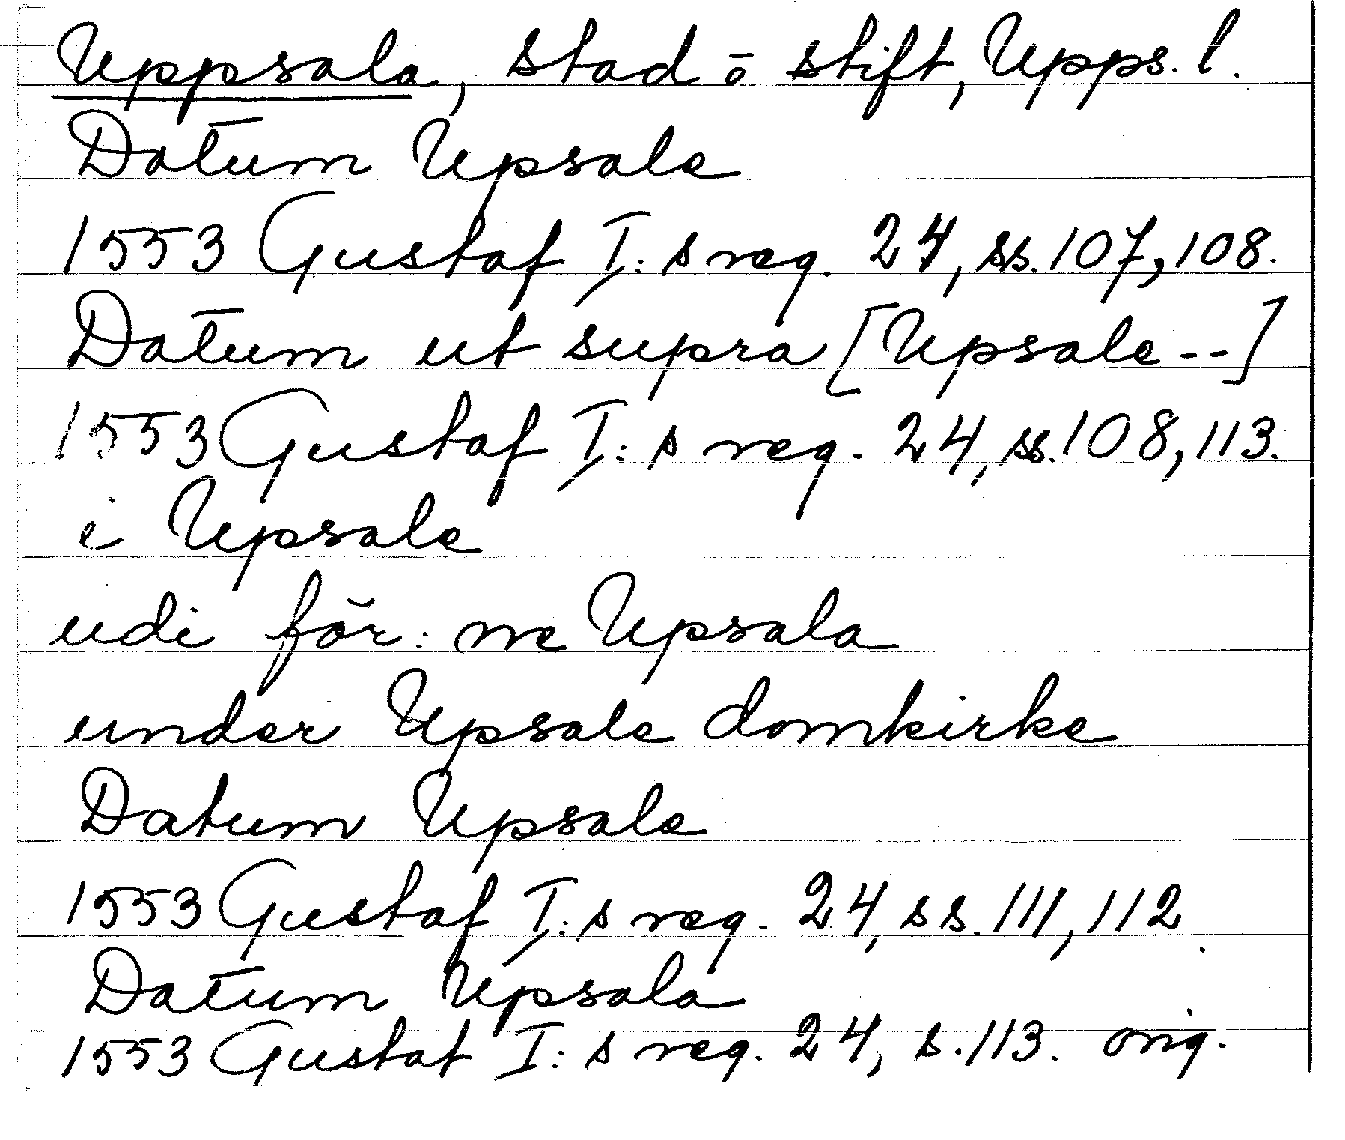 Uppsala, stad o stift, Upps. l.
Datum Upsale
1553 Gustaf I:s reg. 24, ss. 107, 108.
Datum ut supra [Upsale --]
1553 Gustaf I:s reg. 24, ss. 108, 113.
i Upsale
udi för:ne Upsala
under Upsale domkirke
Datum Upsale
1553 Gustaf I:s reg. 24, ss. 111, 112.
Datum Upsala
1553 Gustaf I:s reg. 24, s. 113. orig.